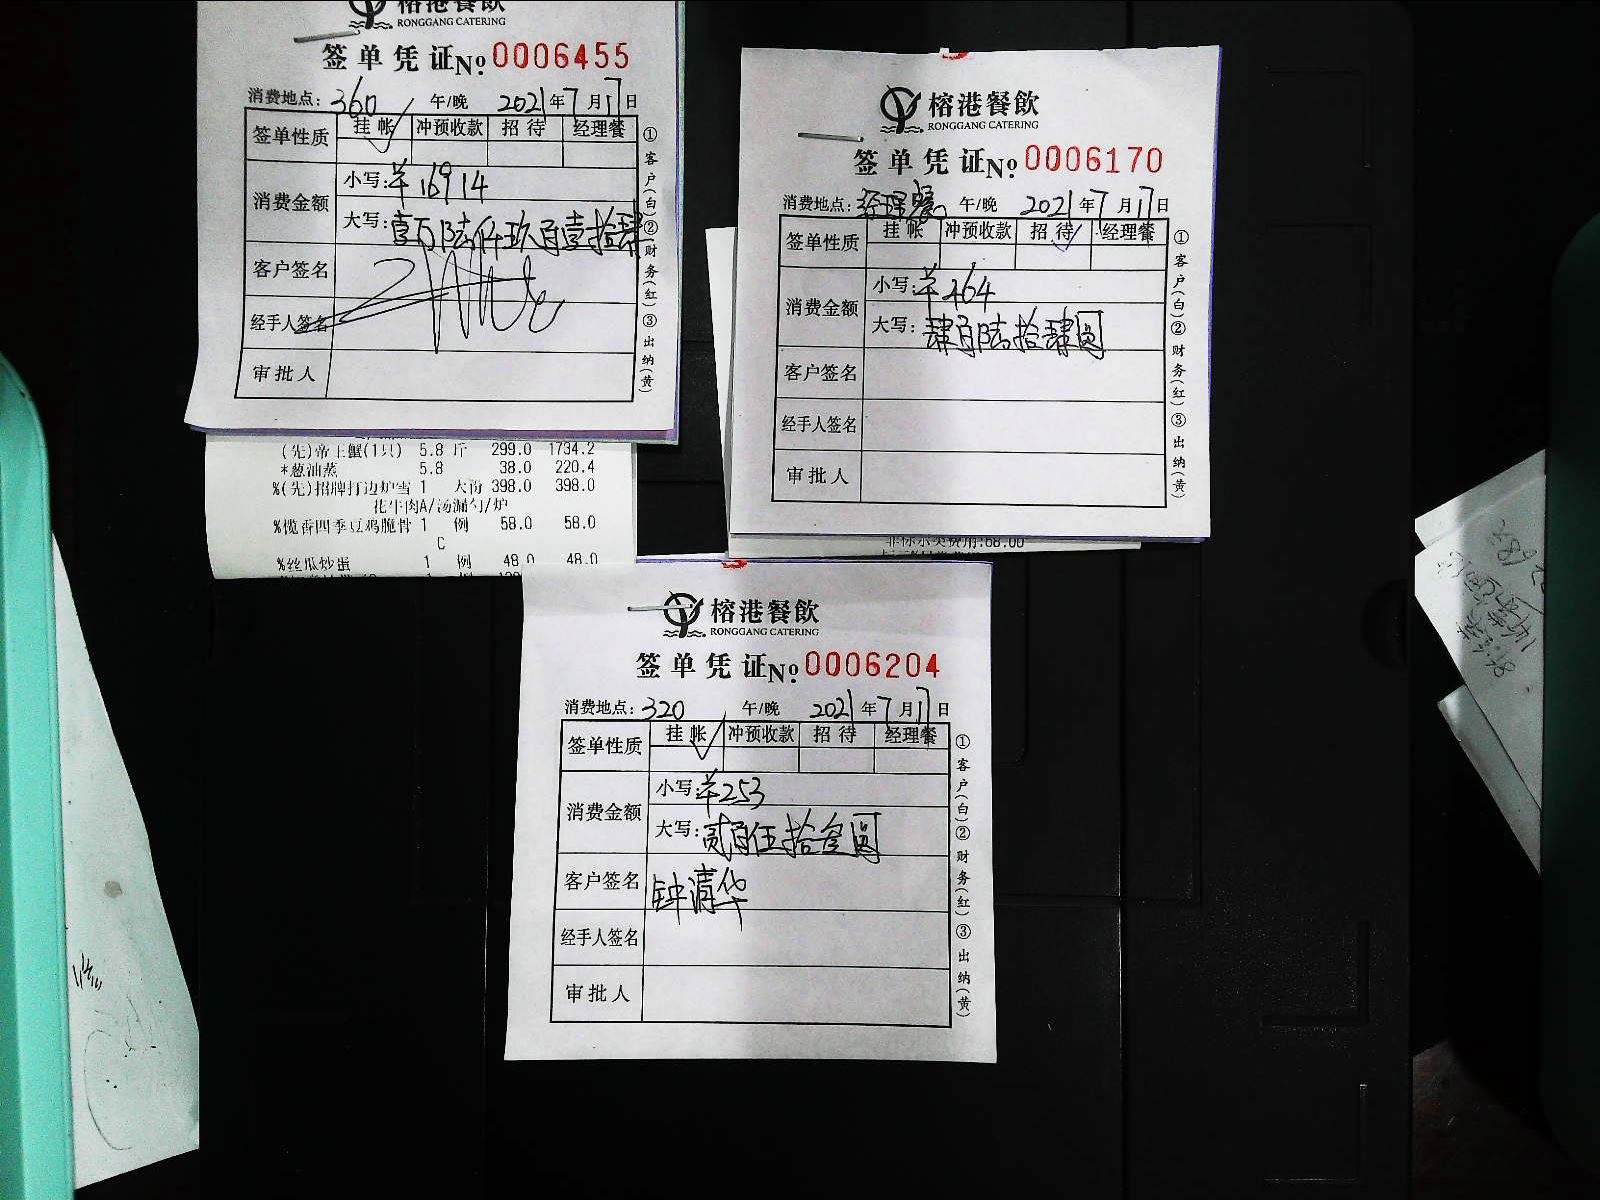 榕港餐飲
RONGGANG CATERING
签单凭证No. 0006455
消费地点: 360 午/晚 2021年7月17日
签单性质 挂帐 ✓ 冲预收款 招待 经理餐
消费金额 小写: ¥16914
大写: 壹万陆仟玖百壹拾肆
客户签名
经手人签名
审批人
①客户(白)②财务(红)③出纳(黄)
(先)帝王蟹(1只) 5.8 斤 299.0 1734.2
*葱油蒸 5.8 38.0 220.4
%(先)招牌打边炉雪 1 大份 398.0 398.0
花牛肉A/汤漏勺/炉
%榄香四季豆鸡脆骨 1 例 58.0 58.0
C
%丝瓜炒蛋 1 例 48.0 48.0
榕港餐飲
RONGGANG CATERING
签单凭证No. 0006170
消费地点: 经理餐 午/晚 2021年7月17日
签单性质 挂帐 冲预收款 招待 ✓ 经理餐
消费金额 小写: ¥464
大写: 肆百陆拾肆圆
客户签名
经手人签名
审批人
①客户(白)②财务(红)③出纳(黄)
榕港餐飲
RONGGANG CATERING
签单凭证No. 0006204
消费地点: 320 午/晚 2021年7月17日
签单性质 挂帐 ✓ 冲预收款 招待 经理餐
消费金额 小写: ¥253
大写: 贰百伍拾叁圆
客户签名 钟清华
经手人签名
审批人
①客户(白)②财务(红)③出纳(黄)